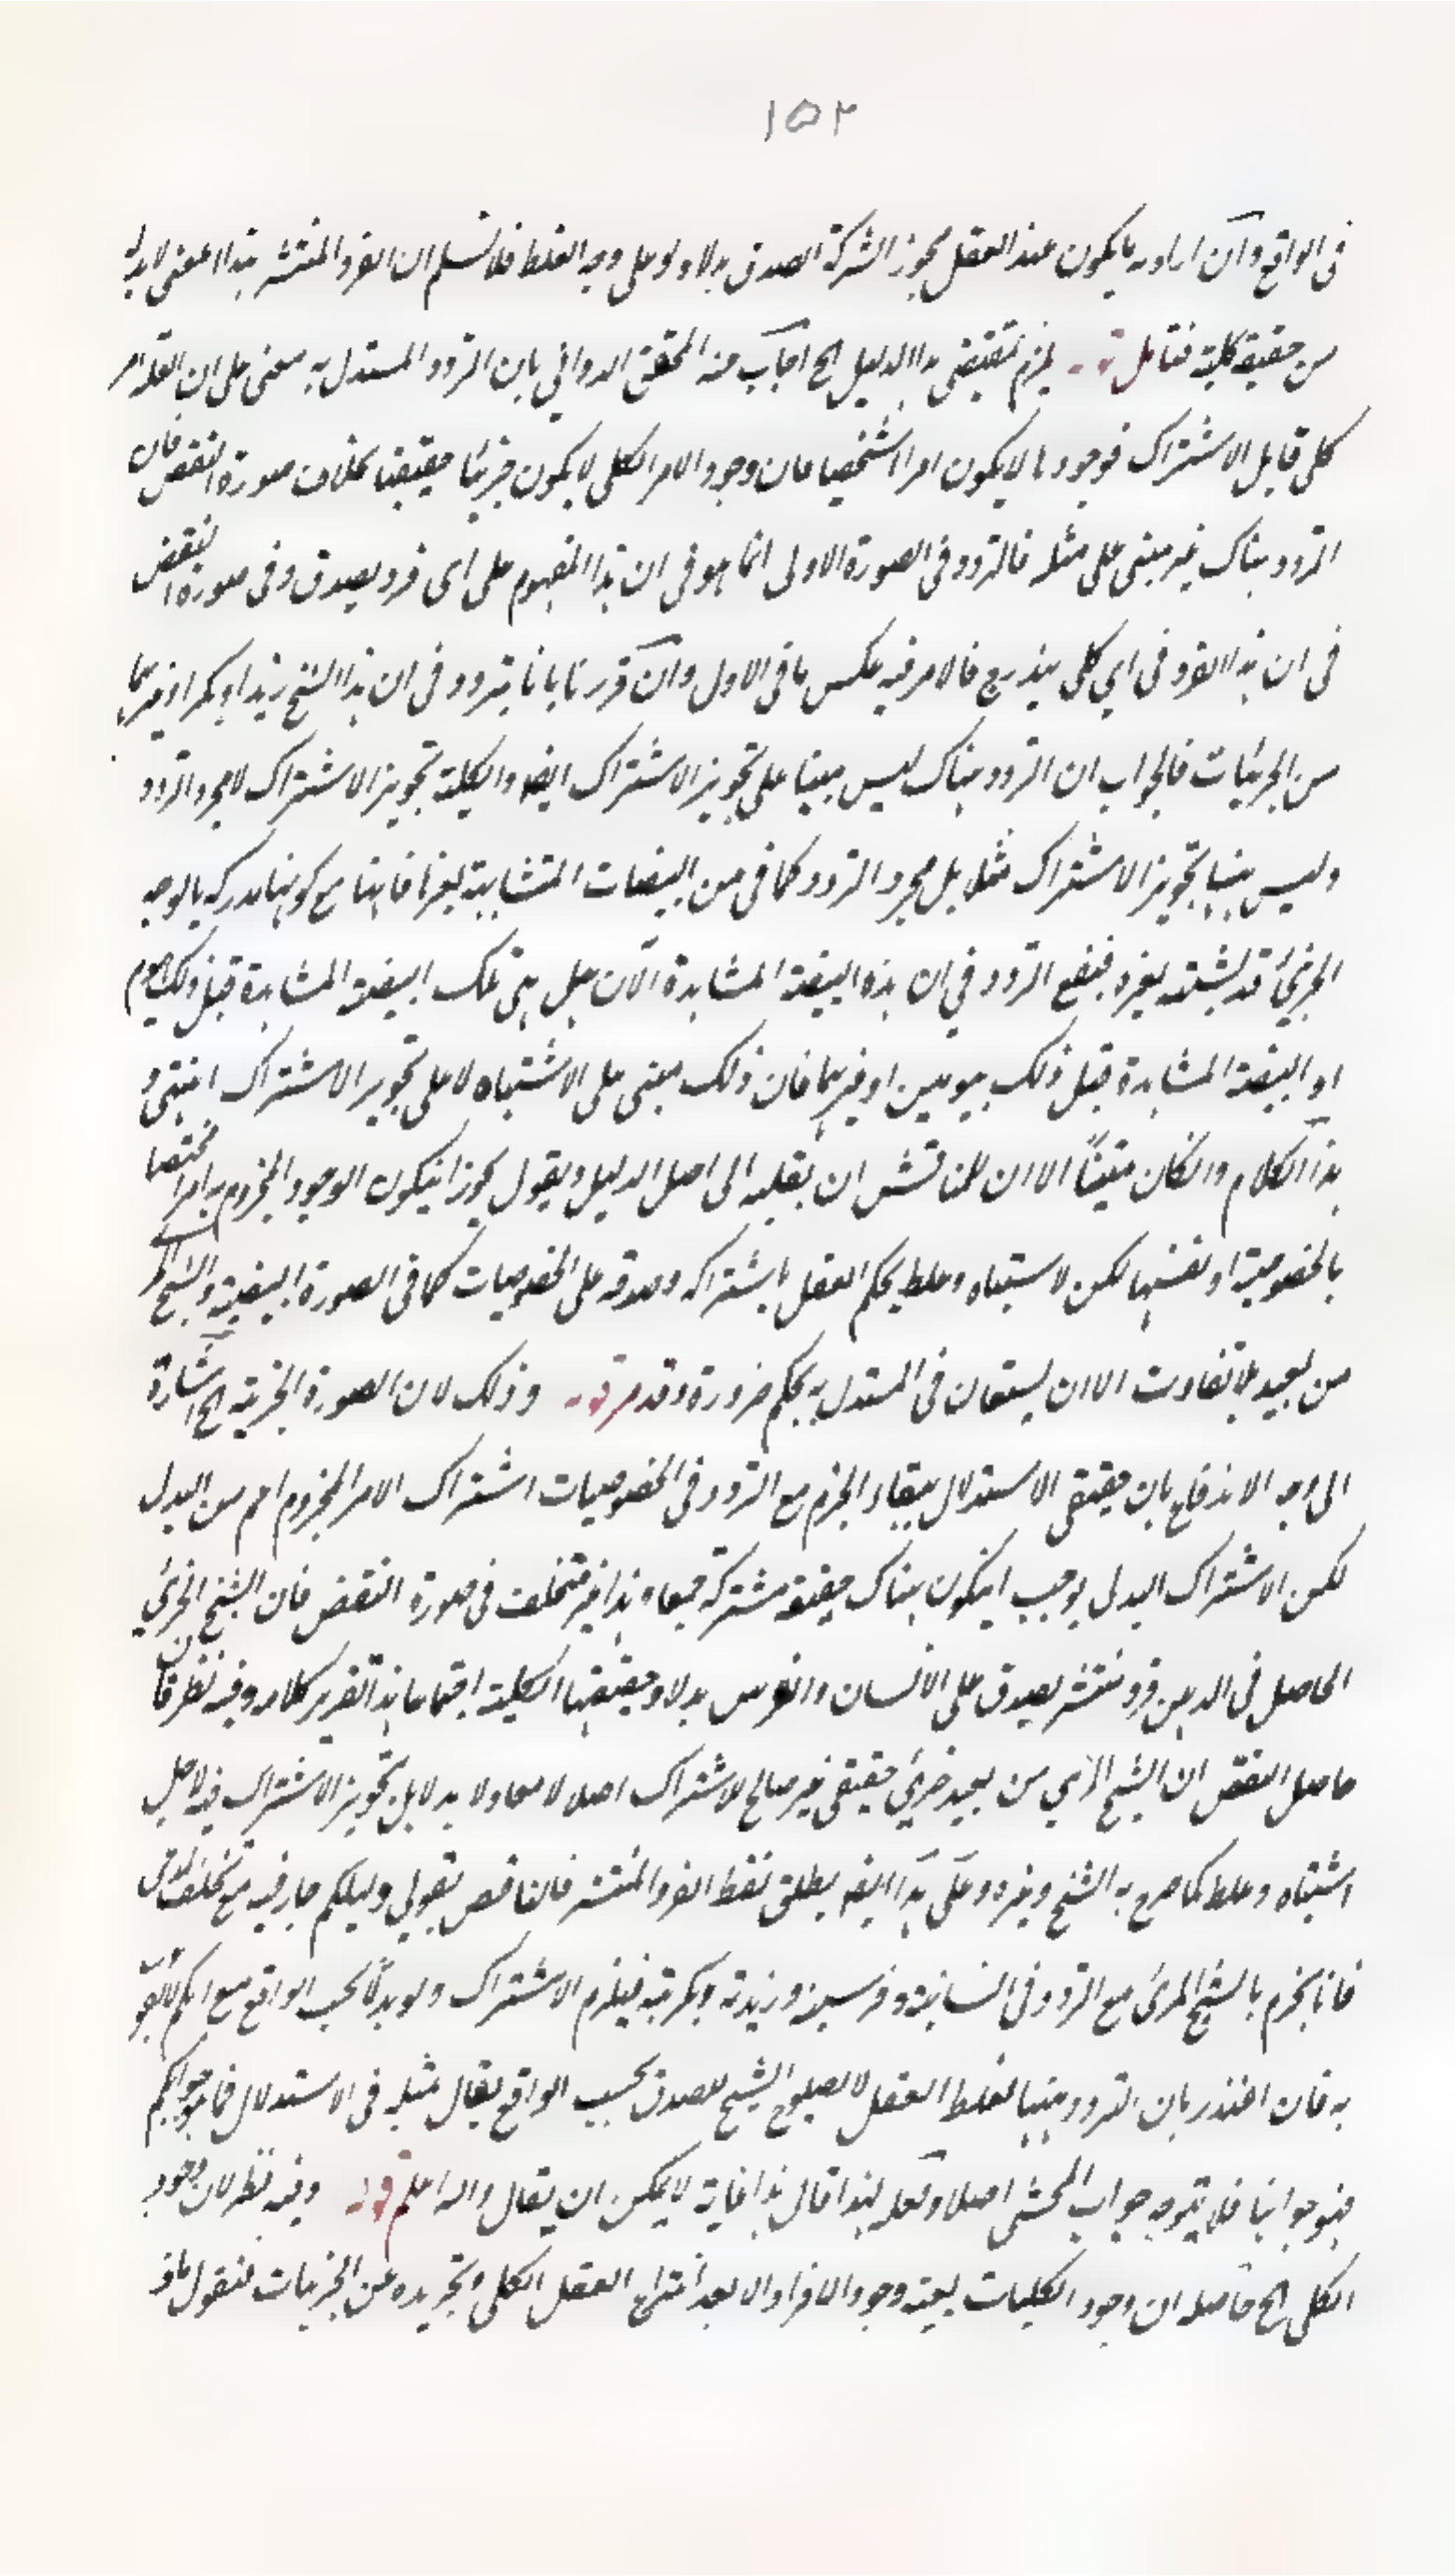 ١٥٢
فى الواقع وان اراد به ما يكون عند العقل مجوز الشركة الصدق بدلا ولو على وجه الغلط فلا نسلم ان الفرد المنتشر بهذا المعنى لا بد له
من حقيقة كلية فتامل قوله يلزم نقيضى هذا الدليل الخ اجاب عنه المحقق الدوانى بان التردد المستدل به مبنى على ان العلة امر
كلى قابل الاشتراك فوجودها لا يكون امرا شخصيا فان وجود الامر الكلى لا يكون جزئيا حقيقيا بخلاف صورة النقض فان
التردد هناك غير مبنى على مثله فالتردد فى الصورة الاولى انما هو فى ان هذا المفهوم على اى فرد يصدق وفى صورة النقض
فى ان هذا الفرد فى اى كلى يندرج فالامر فيه عكس ما فى الاول وان قرر بانا نتردد فى ان هذا الشبح زيد او بكر او غيرهما
من الجزئيات فالجواب ان التردد هناك ليس مبنيا على تجويز الاشتراك ايضا والكلية تجويز الاشتراك لا مجرد التردد
وليس ههنا تجويز الاشتراك مثلا بل مجرد التردد كما فى من البيضات المتشابهة لغيرها فانها مع كونها مدركة بالوجه
الجزئى قد يشتبه بغيره فيقع التردد فى ان هذه البيضة المشاهدة الآن هل هى تلك البيضة المشاهدة قبل ذلك بيوم
او البيضة المشاهدة قبل ذلك بيومين او غيرهما فان ذلك مبنى على الاشتباه لا على تجويز الاشتراك انتهى و
هذا الكلام وان كان متينًا الا ان للمناقش ان يقلبه الى اصل الدليل ويقول يجوز ان يكون الوجود المجزوم به امرا مختصا
بالخصوصية او نفسها لكن لاشتباه وغلط يحكم العقل باشتراكه وصدقه على الخصوصيات كما فى الصورة البيضية والشبح المرئى
من بعيد بلا تفاوت الا ان يستعان فى المستدل به بحكم ضرورة وقد مر قوله وذلك لان الصورة الجزئية الخ اشارة
الى وجه الاندفاع بان حقيقى الاستدلال ببقاء الجزم مع التردد فى الخصوصيات اشتراك الامر المجزوم اعم من البدل
لكن الاشتراك البدلى يوجب ان يكون هناك حقيقة مشتركة جمعا وهذا غير متخلف فى صورة النقض فان الشبح الجزئى
الحاصل فى الذهن فرد منتشر يصدق على الانسان والفرس بدلا وحقيقتها الكلية اجتماعا هذا تقرير كلامه وفيه نظر فان
حاصل النقض ان الشبح المرئى من بعيد جزئى حقيقى غير صالح لاشتراك اصلا لا معا ولا بدلا بل تجويز الاشتراك فيه لاجل
اشتباه وغلط كما صرح به الشيخ وغيره وعلى هذا ايضا يطلق لفظ الفرد المنتشر فالناقض يقول دليلكم جار فيه مع تخلف المدعى
فانا نجزم بالشبح المرئى مع التردد فى انسانيته وفرسيته وزيدته وبكريته فيلزم الاشتراك ولو بدلًا بحسب الواقع مع انكم لا تقولون
به فان اعتذر بان التردد ههنا لغلط العقل لا لصلوح الشبح للصدق بحسب الواقع يقال مثله فى الاستدلال فما هو جوابكم
فهو جوابنا فلا يتوجه جواب المحشى اصلا ولعله لهذا قال هذا غاية ما يمكن ان يقال والله اعلم قوله وفيه نظر لان وجود
الكلى الخ حاصله ان وجود الكليات بعينه وجود الافراد الا بعد انتزاع العقل الكلى وتجريده عن الجزئيات فنقول